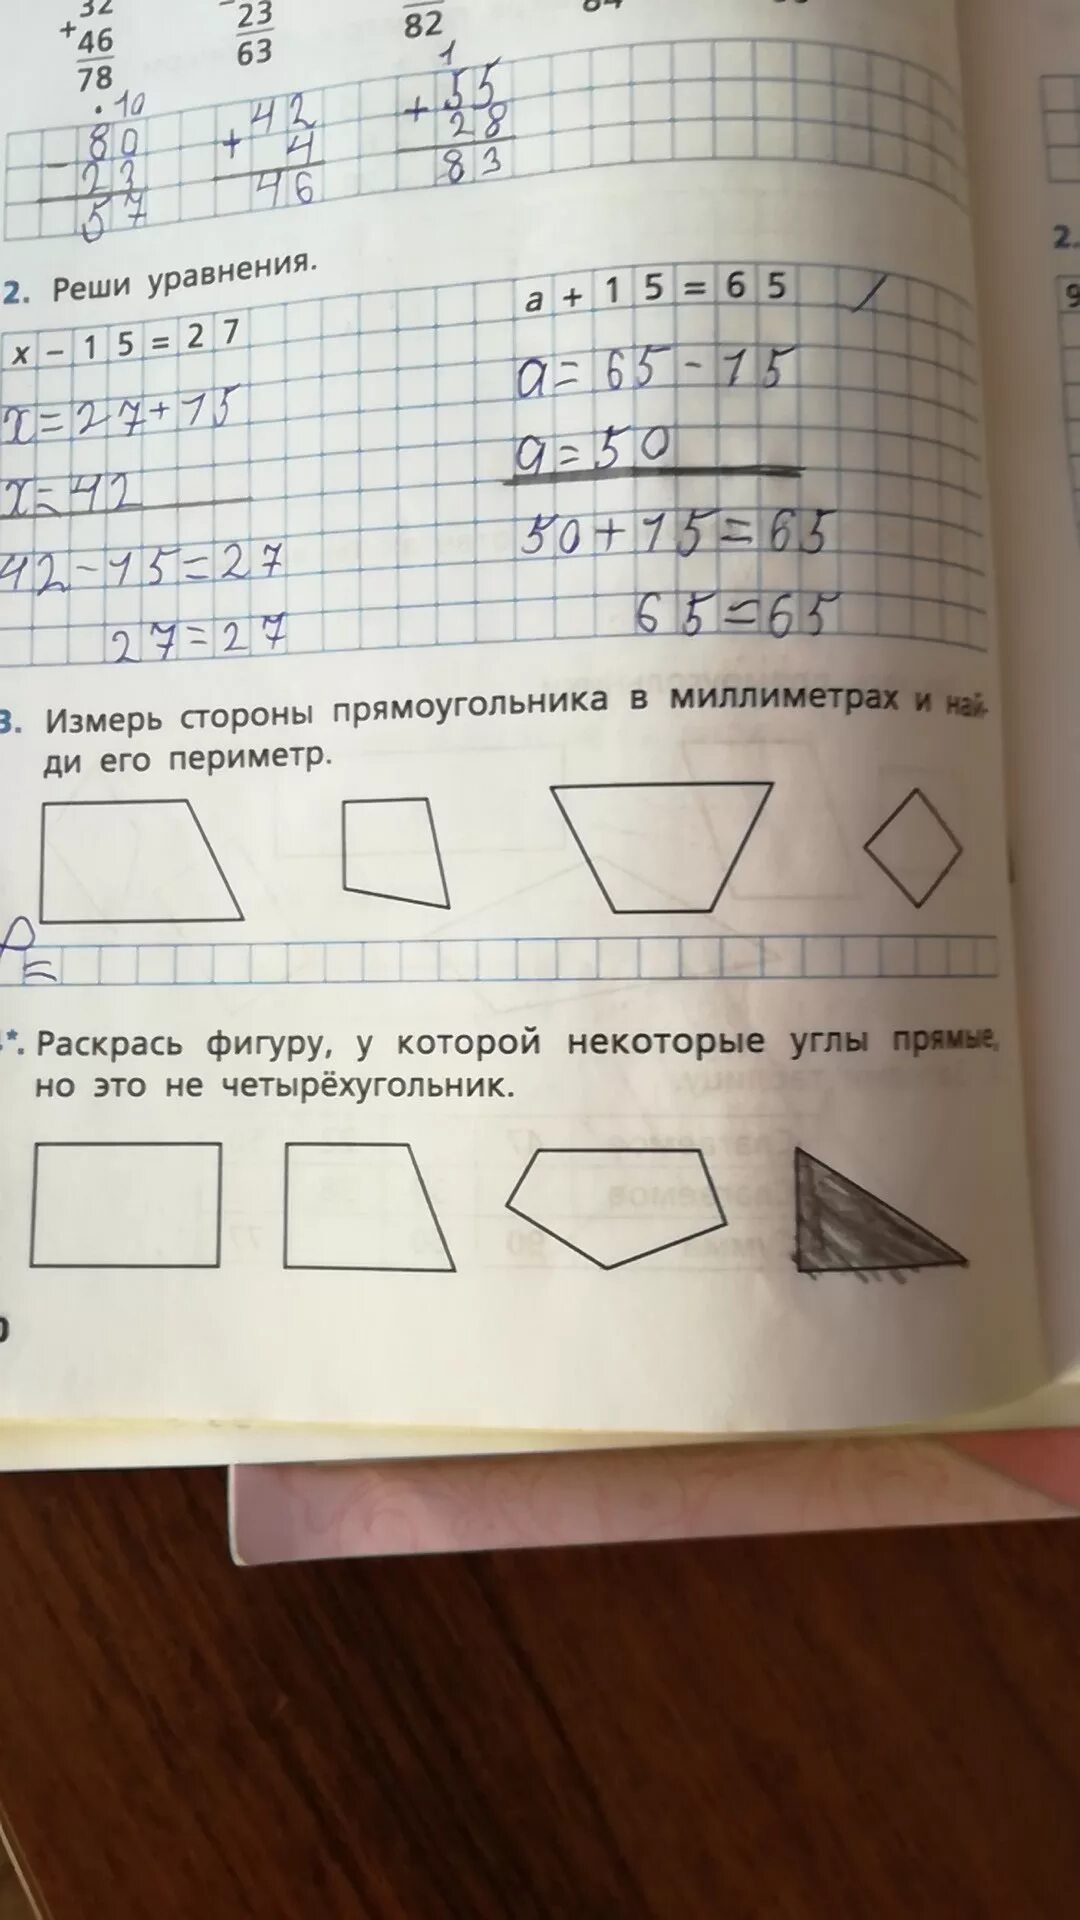 32 23 82
+ 46 63
78
· 10 1
80 42 + 55
− 23 + 4 28
57 46 83
2. Реши уравнения.
x − 15 = 27 a + 15 = 65
x = 27 + 15 a = 65 − 15
x = 42 a = 50
42 − 15 = 27 50 + 15 = 65
27 = 27 65 = 65
3. Измерь стороны прямоугольника в миллиметрах и най-
ди его периметр.
P =
*. Раскрась фигуру, у которой некоторые углы прямые,
но это не четырёхугольник.
2.
9
0